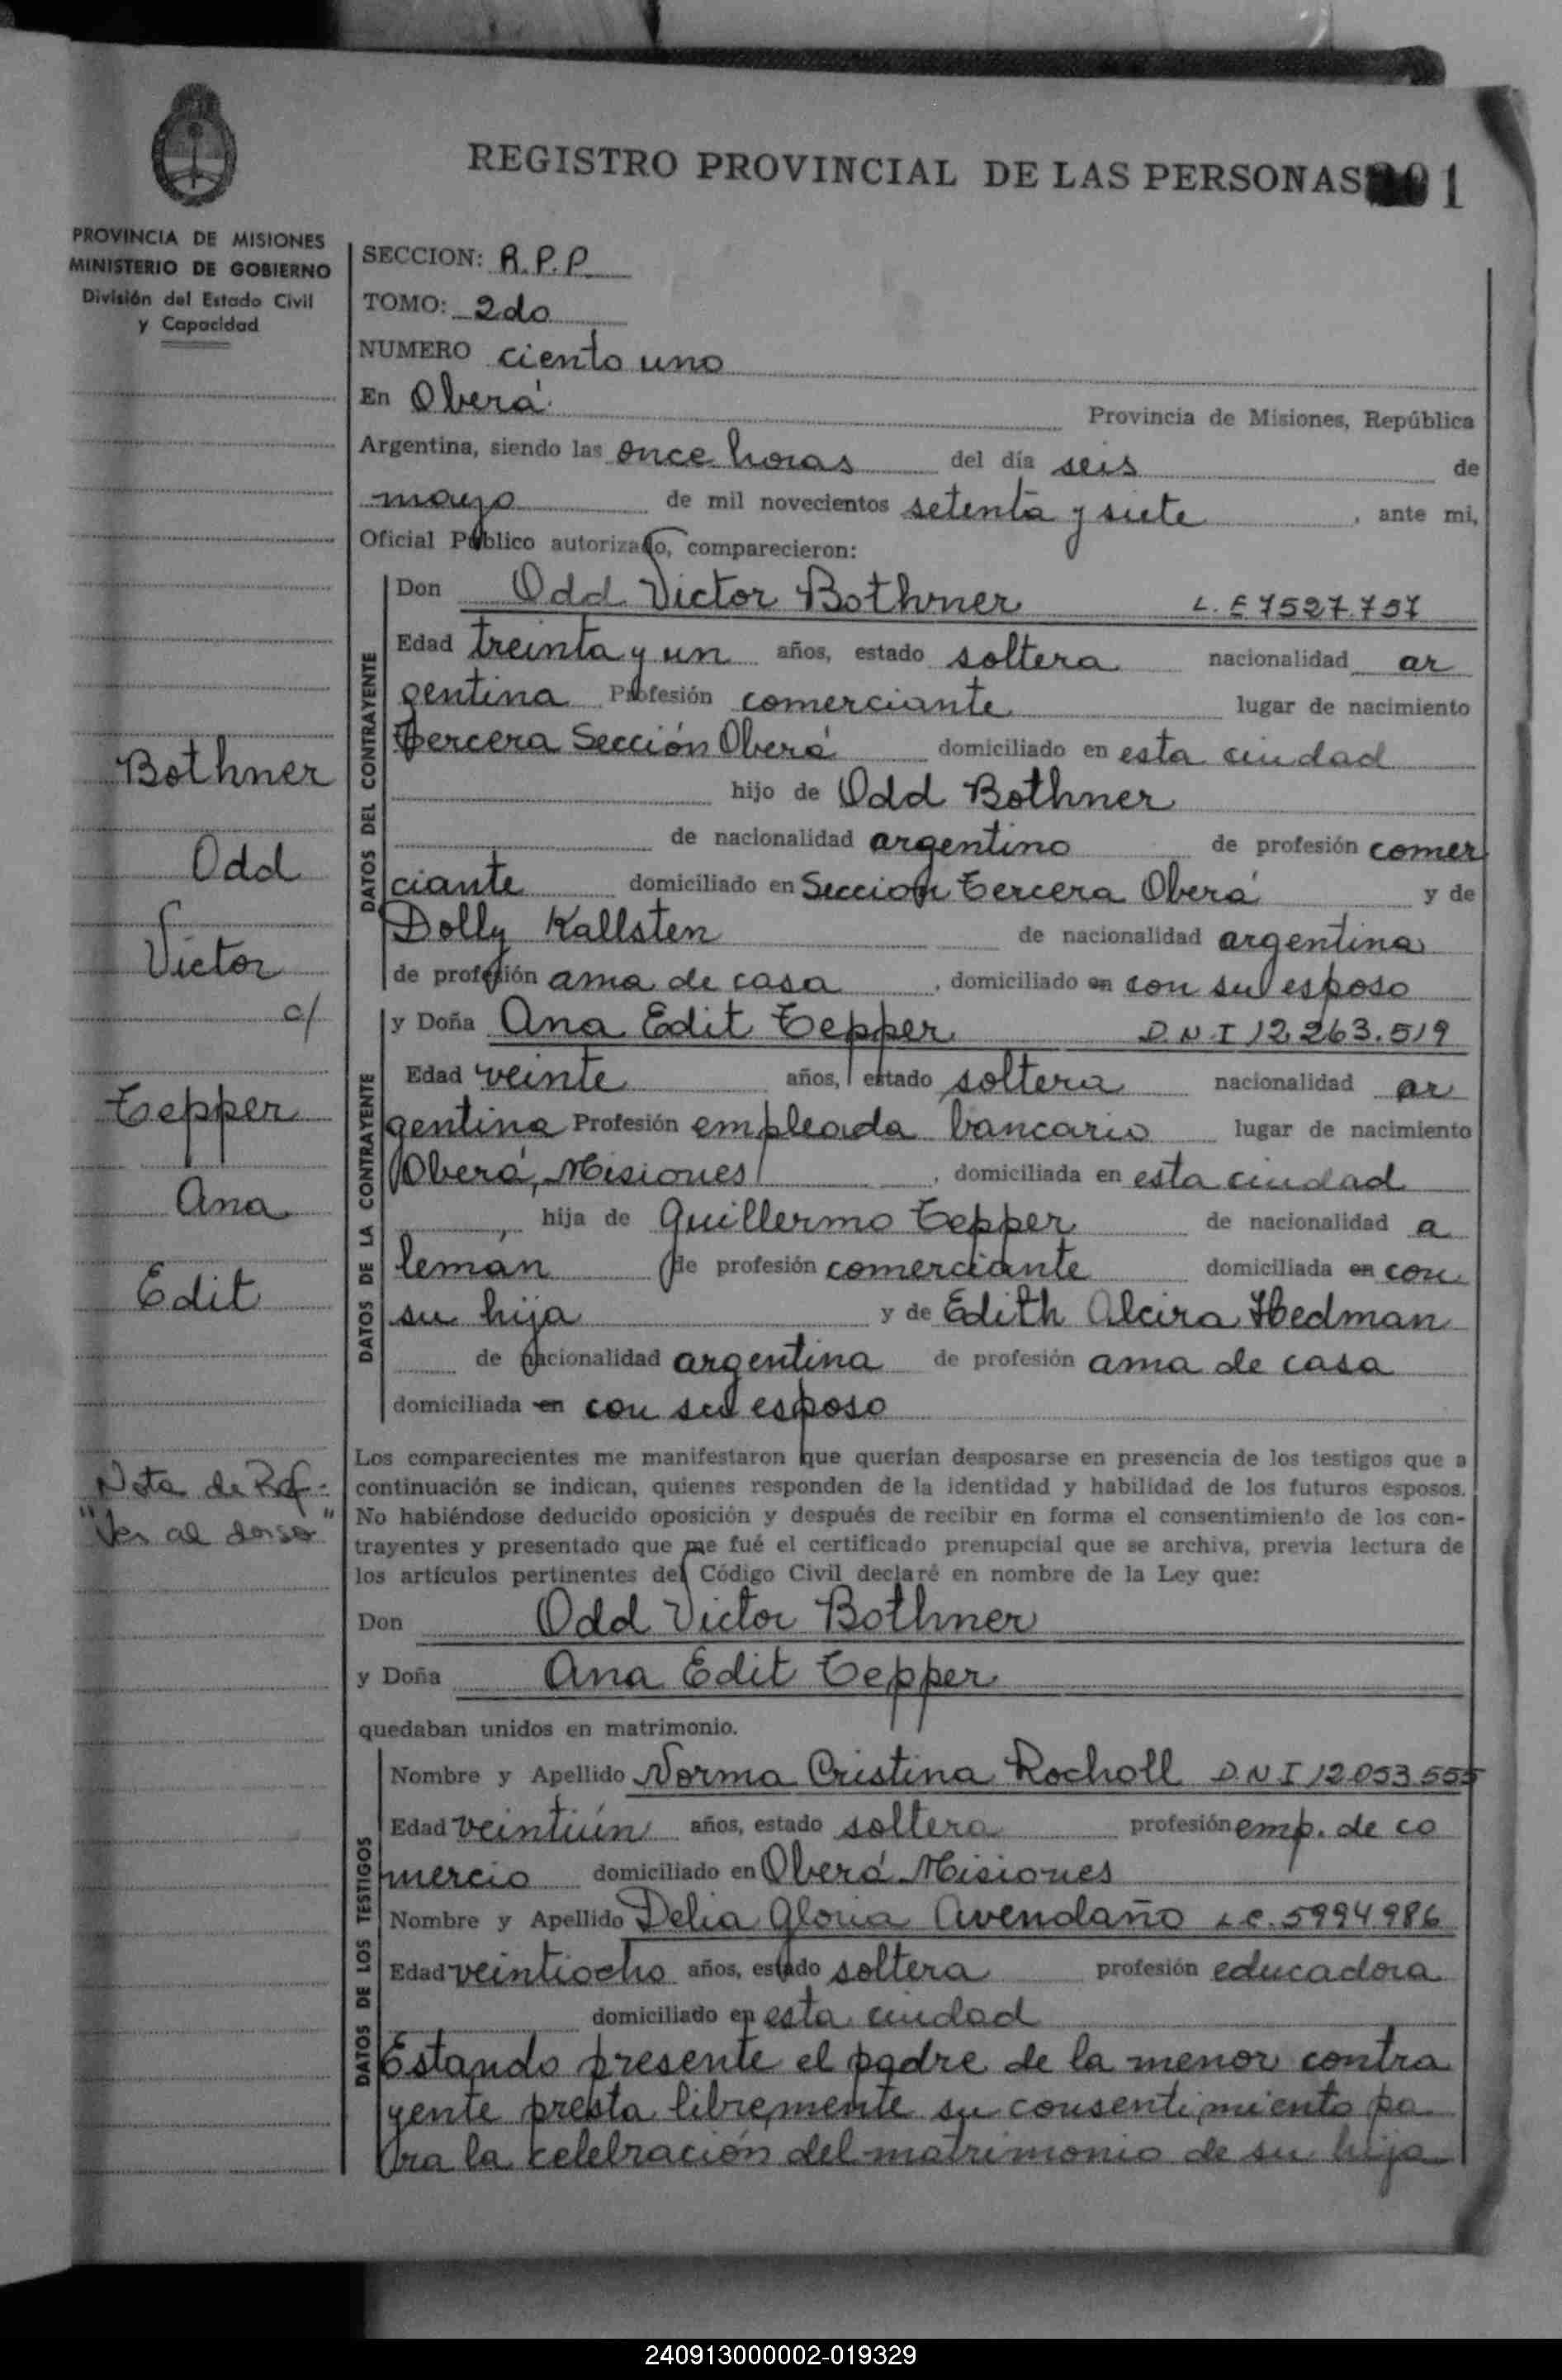 REGISTRO PROVINCIAL DE LAS PERSONAS 1
PROVINCIA DE MISIONES
MINISTERIO DE GOBIERNO
División del Estado Civil
y Capacidad
SECCION: R.P.P.
TOMO: 2do
NUMERO ciento uno
En Oberá Provincia de Misiones, República
Argentina, siendo las once horas del día seis de
mayo de mil novecientos setenta y siete, ante mi,
Oficial Público autorizado, comparecieron:
DATOS DEL CONTRAYENTE
Don Odd Victor Bothner L.E 7527.757
Edad treinta y un años, estado soltera nacionalidad ar
gentina Profesión comerciante lugar de nacimiento
Tercera Sección Oberá domiciliado en esta ciudad
hijo de Odd Bothner
de nacionalidad argentino de profesión comer
ciante domiciliado en Sección Tercera Oberá y de
Dolly Kallsten de nacionalidad argentina
de profesión ama de casa, domiciliado en con su esposo
DATOS DE LA CONTRAYENTE
y Doña Ana Edit Tepper D.N.I 12.263.519
Edad veinte años, estado soltera nacionalidad ar
gentina Profesión empleada bancario lugar de nacimiento
Oberá, Misiones, domiciliada en esta ciudad
hija de Guillermo Tepper de nacionalidad a
lemán de profesión comerciante domiciliada en con
su hija y de Edith Alcira Hedman
de nacionalidad argentina de profesión ama de casa
domiciliada en con su esposo
Bothner
Odd
Victor
c/
Tepper
Ana
Edit
Nota de Ref.:
"Ver al dorso"
Los comparecientes me manifestaron que querían desposarse en presencia de los testigos que a
continuación se indican, quienes responden de la identidad y habilidad de los futuros esposos.
No habiéndose deducido oposición y después de recibir en forma el consentimiento de los con-
trayentes y presentado que me fué el certificado prenupcial que se archiva, previa lectura de
los artículos pertinentes del Código Civil declaré en nombre de la Ley que:
Don Odd Victor Bothner
y Doña Ana Edit Tepper
quedaban unidos en matrimonio.
DATOS DE LOS TESTIGOS
Nombre y Apellido Norma Cristina Rocholl D.N.I 12.053.555
Edad veintiún años, estado soltera profesión emp. de co
mercio domiciliado en Oberá Misiones
Nombre y Apellido Delia Gloria Avendaño L.C. 5994986
Edad veintiocho años, estado soltera profesión educadora
domiciliado en esta ciudad
Estando presente el padre de la menor contra
yente presta libremente su consentimiento pa
ra la celebración del matrimonio de su hija
240913000002-019329